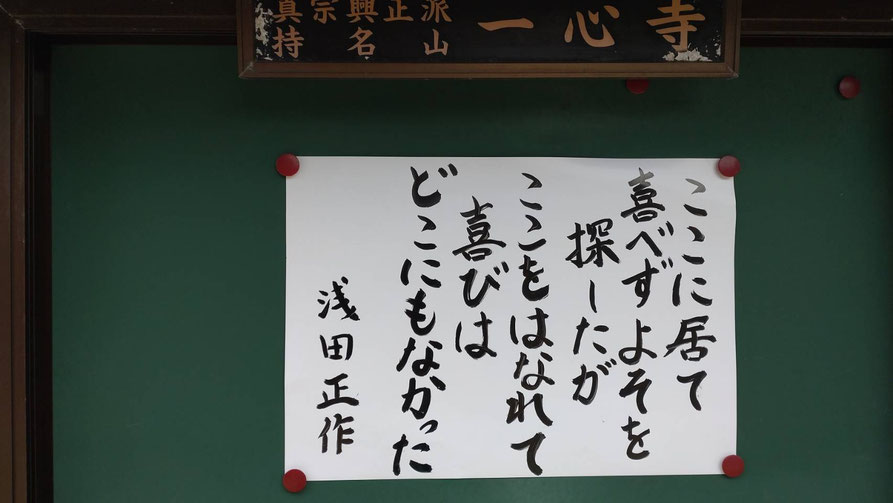 一心寺
派山
正
興名
宗
真持
ここに居て
喜べずよそを
探したが
ここをはなれて
喜びは
どこにもなかった
浅田正作